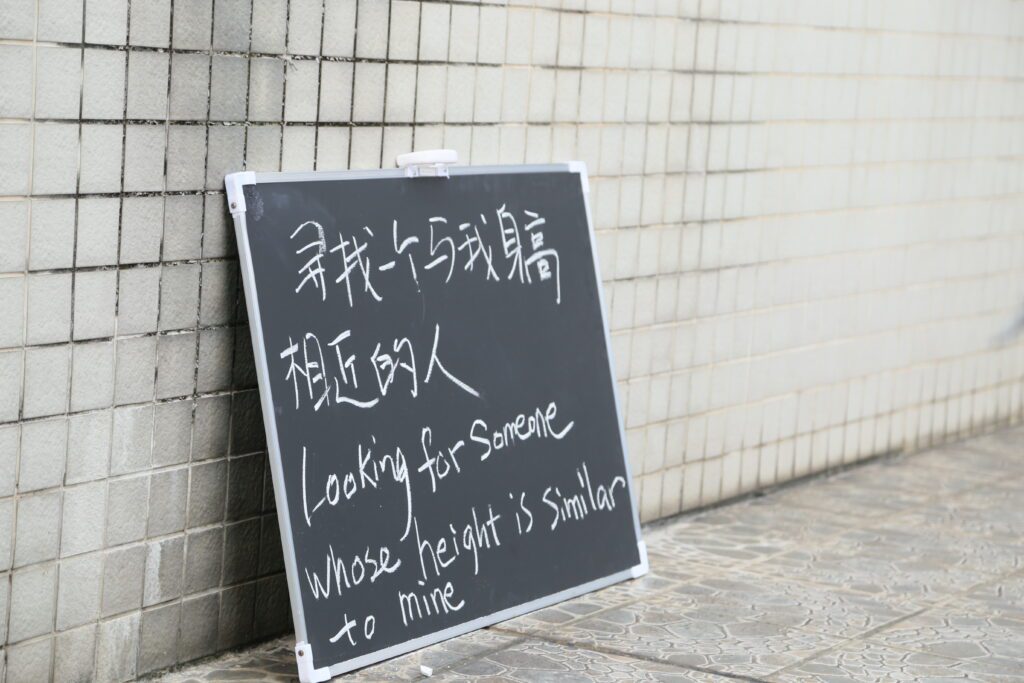 寻找一个与我身高
相近的人
Looking for someone
whose height is similar
to mine